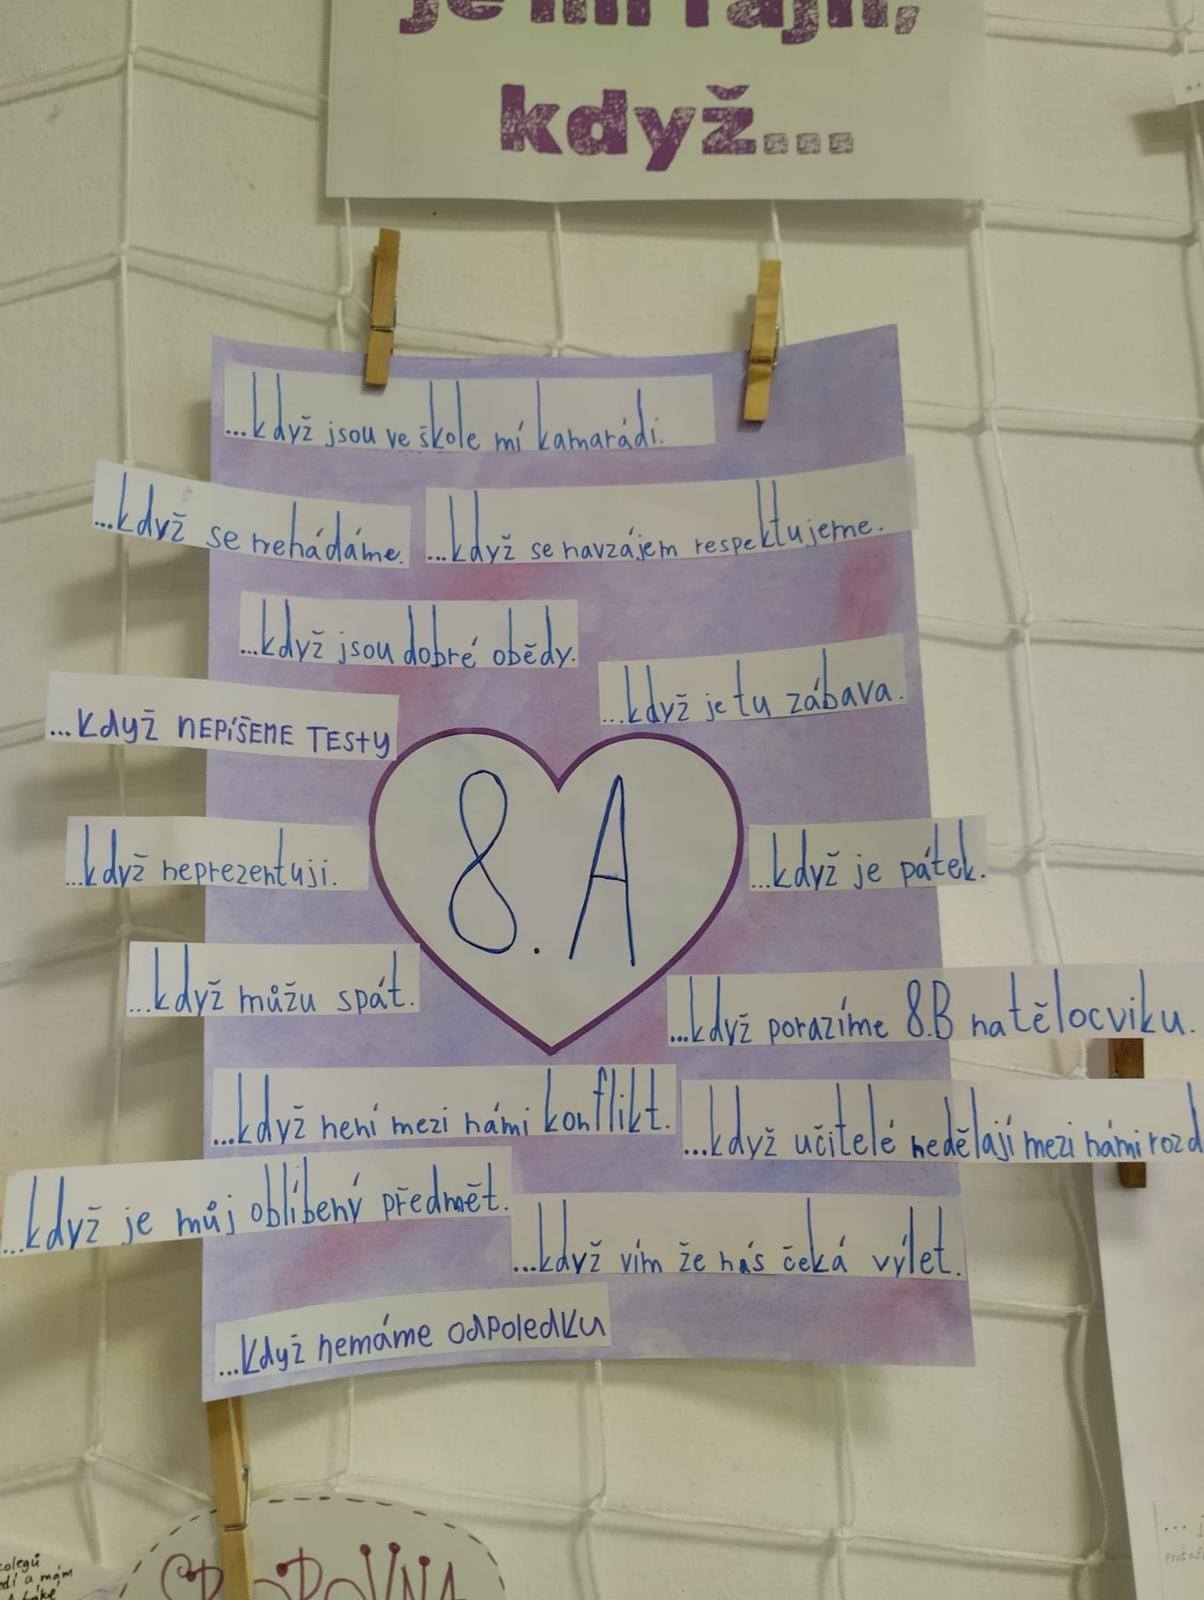 je mi fajn,
když...
...když jsou ve škole mí kamarádi.
...když se nehádáme.
...když se navzájem respektujeme.
...když jsou dobré obědy.
...když je tu zábava.
...když NEPíŠEME TESty
8.A
...když neprezentuji.
...když je pátek.
...když můžu spát.
...když porazíme 8.B na tělocviku.
...když není mezi námi konflikt.
...když učitelé nedělají mezi námi rozd
...když je můj oblíbený předmět.
...když vím že nás čeká výlet.
...když nemáme odpoledku
kolegů
a mám